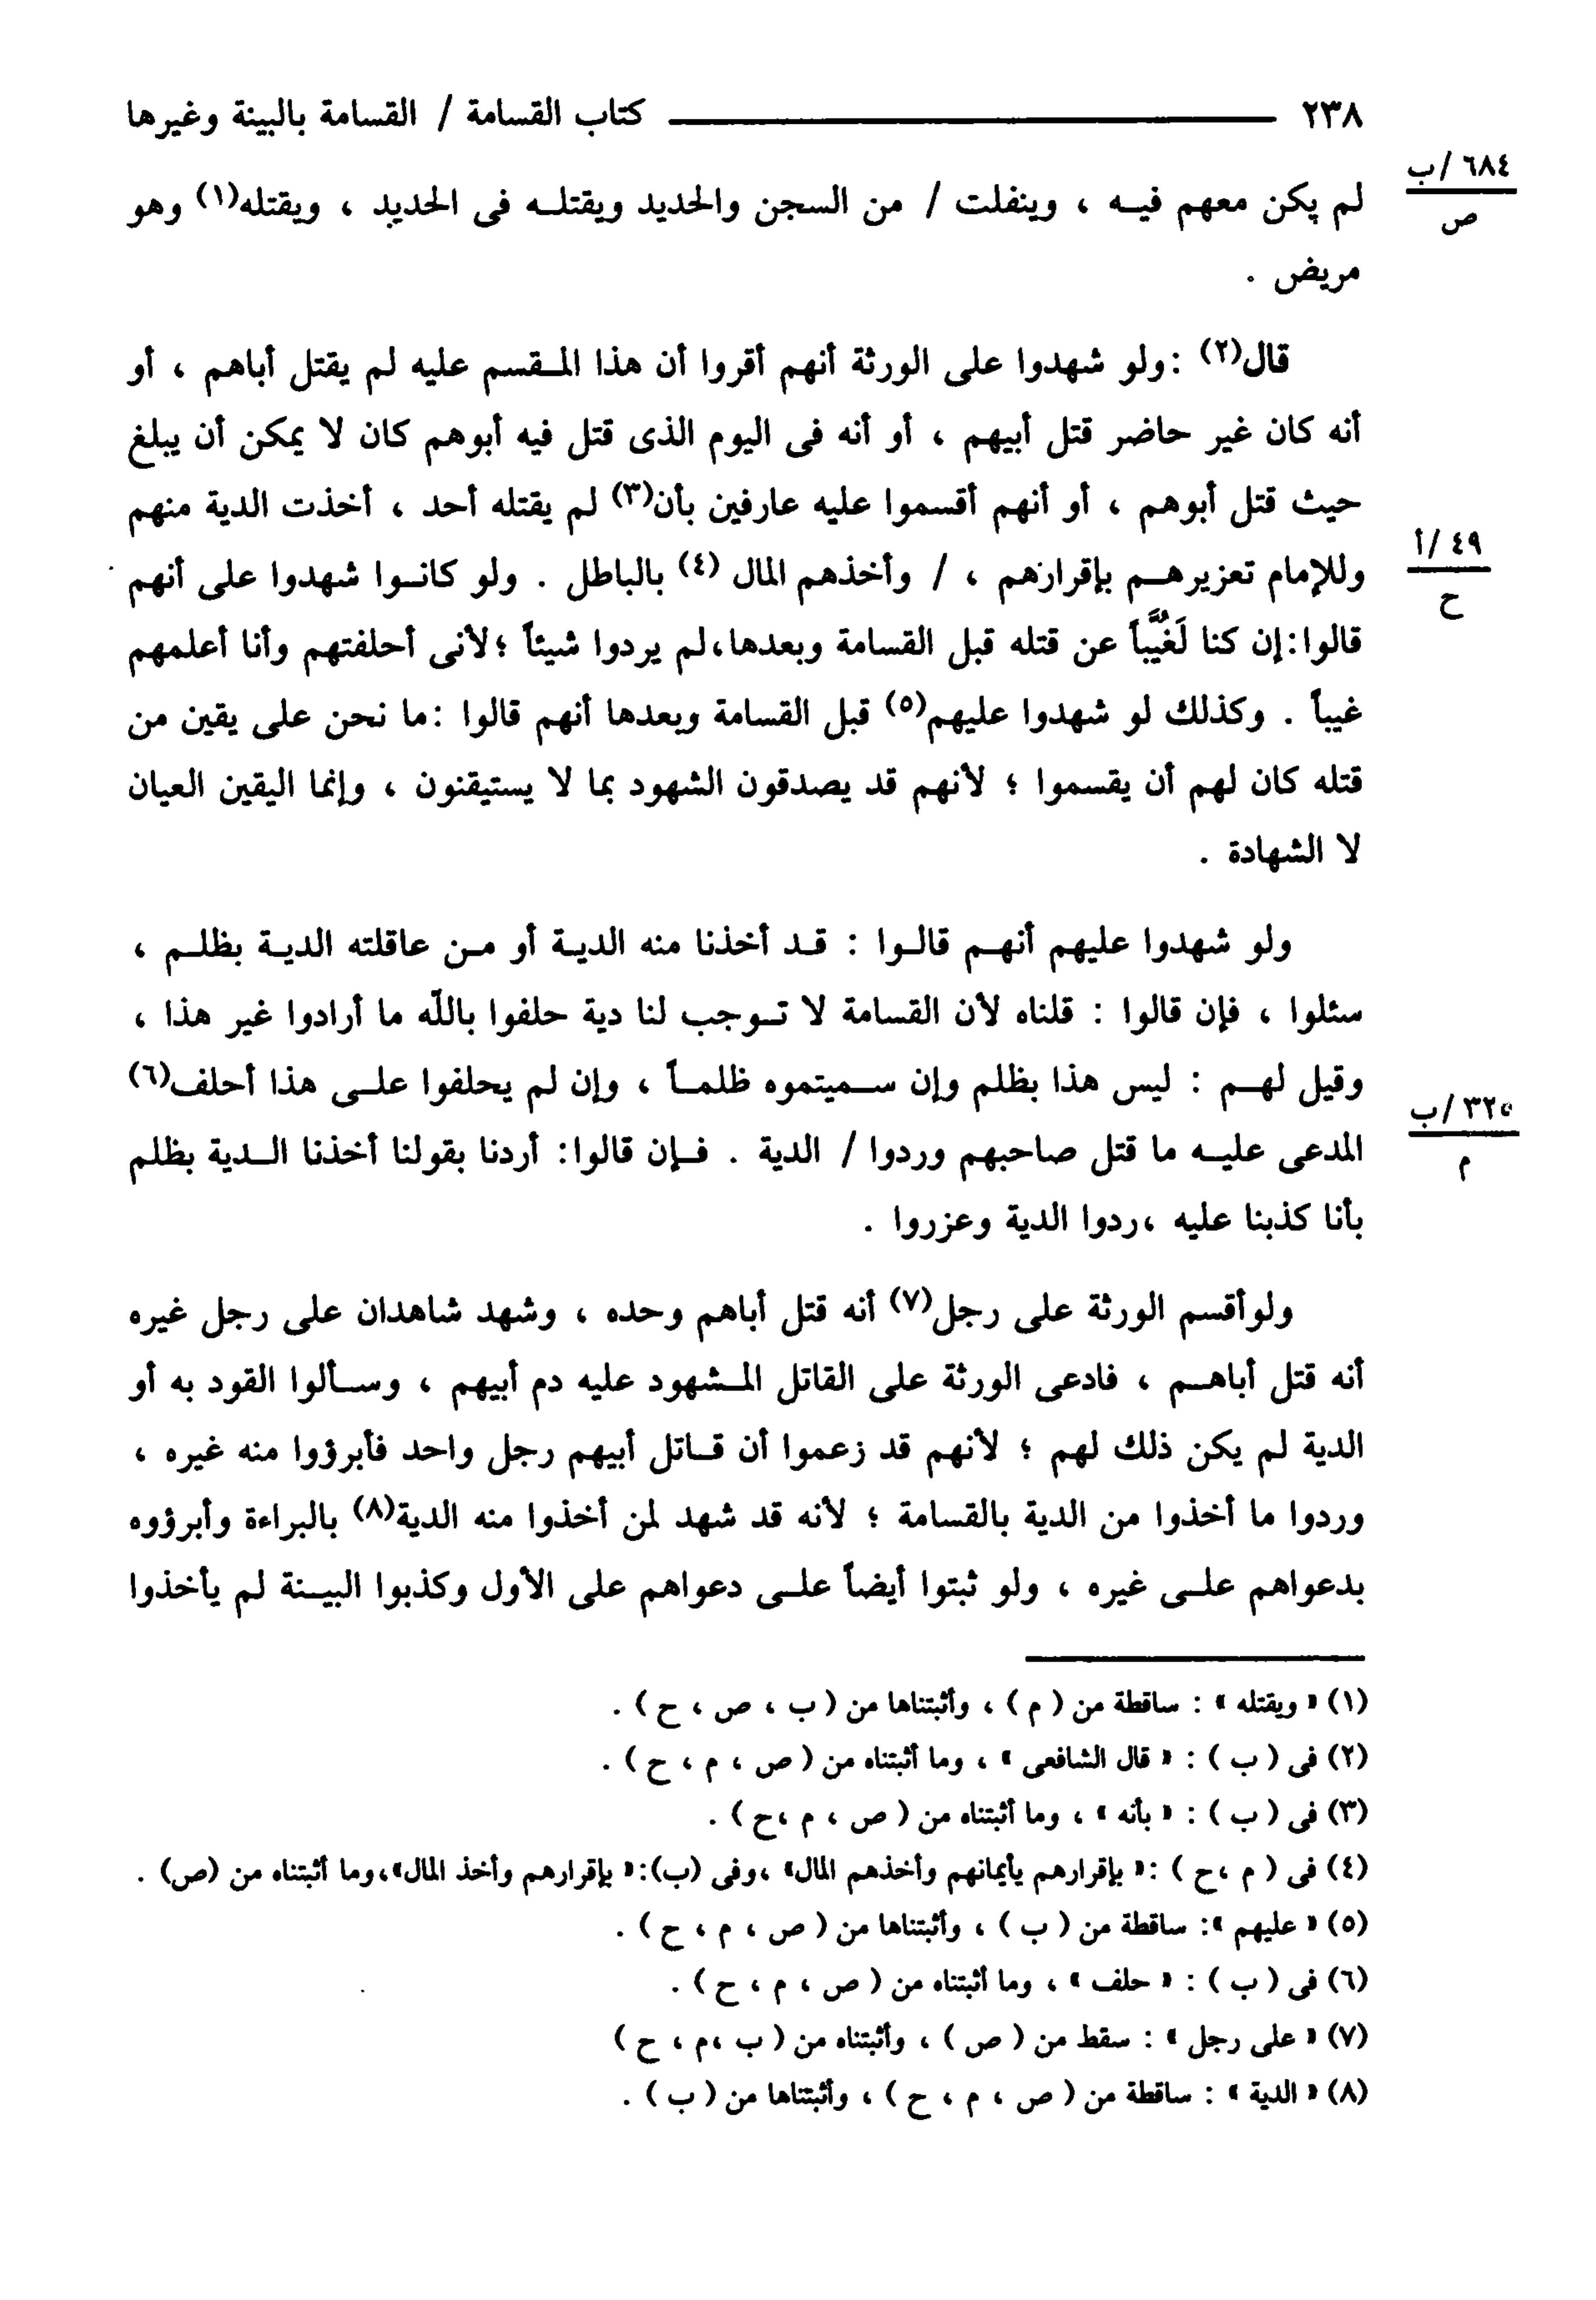 ٢٣٨ كتاب القسامة / القسامة بالبينة وغيرها
٦٨٤ /ب
ص
لم يكن معهم فيه ، وينفلت / من السجن والحديد ويقتله فى الحديد ، ويقتله(١) وهو
مريض .
قال(٢) :ولو شهدوا على الورثة أنهم أقروا أن هذا المقسم عليه لم يقتل أباهم ، أو
أنه كان غير حاضر قتل أبيهم ، أو أنه فى اليوم الذى قتل فيه أبوهم كان لا يمكن أن يبلغ
حيث قتل أبوهم ، أو أنهم أقسموا عليه عارفين بأن(٣) لم يقتله أحد ، أخذت الدية منهم
٤٩ /أ
ح
وللإمام تعزيرهم بإقرارهم ، / وأخذهم المال (٤) بالباطل . ولو كانوا شهدوا على أنهم
قالوا:إن كنا لَغُيَّباً عن قتله قبل القسامة وبعدها،لم يردوا شيئاً ؛لأنى أحلفتهم وأنا أعلمهم
غيباً . وكذلك لو شهدوا عليهم(٥) قبل القسامة وبعدها أنهم قالوا :ما نحن على يقين من
قتله كان لهم أن يقسموا ؛ لأنهم قد يصدقون الشهود بما لا يستيقنون ، وإنما اليقين العيان
لا الشهادة .
ولو شهدوا عليهم أنهم قالوا : قد أخذنا منه الدية أو من عاقلته الدية بظلم ،
سئلوا ، فإن قالوا : قلناه لأن القسامة لا توجب لنا دية حلفوا بالله ما أرادوا غير هذا ،
وقيل لهم : ليس هذا بظلم وإن سميتموه ظلماً ، وإن لم يحلفوا على هذا أحلف(٦)
٣٢٥ /ب
م
المدعى عليه ما قتل صاحبهم وردوا / الدية . فإن قالوا: أردنا بقولنا أخذنا الدية بظلم
بأنا كذبنا عليه ،ردوا الدية وعزروا .
ولوأقسم الورثة على رجل(٧) أنه قتل أباهم وحده ، وشهد شاهدان على رجل غيره
أنه قتل أباهم ، فادعى الورثة على القاتل المشهود عليه دم أبيهم ، وسألوا القود به أو
الدية لم يكن ذلك لهم ؛ لأنهم قد زعموا أن قاتل أبيهم رجل واحد فأبرؤوا منه غيره ،
وردوا ما أخذوا من الدية بالقسامة ؛ لأنه قد شهد لمن أخذوا منه الدية(٨) بالبراءة وأبرؤوه
بدعواهم على غيره ، ولو ثبتوا أيضاً على دعواهم على الأول وكذبوا البينة لم يأخذوا
(١) « ويقتله » : ساقطة من ( م ) ، وأثبتناها من ( ب ، ص ، ح ) .
(٢) فى ( ب ) : « قال الشافعى » ، وما أثبتناه من ( ص ، م ، ح ) .
(٣) فى ( ب ) : « بأنه » ، وما أثبتناه من ( ص ، م ،ح ) .
(٤) فى ( م ،ح ) :« بإقرارهم بأيمانهم وأخذهم المال» ،وفى (ب):« بإقرارهم وأخذ المال»،وما أثبتناه من (ص) .
(٥) « عليهم »: ساقطة من ( ب ) ، وأثبتناها من ( ص ، م ، ح ) .
(٦) فى ( ب ) : « حلف » ، وما أثبتناه من ( ص ، م ، ح ) .
(٧) « على رجل » : سقط من ( ص ) ، وأثبتناه من ( ب ،م ، ح )
(٨) « الدية » : ساقطة من ( ص ، م ، ح ) ، وأثبتناها من ( ب ) .